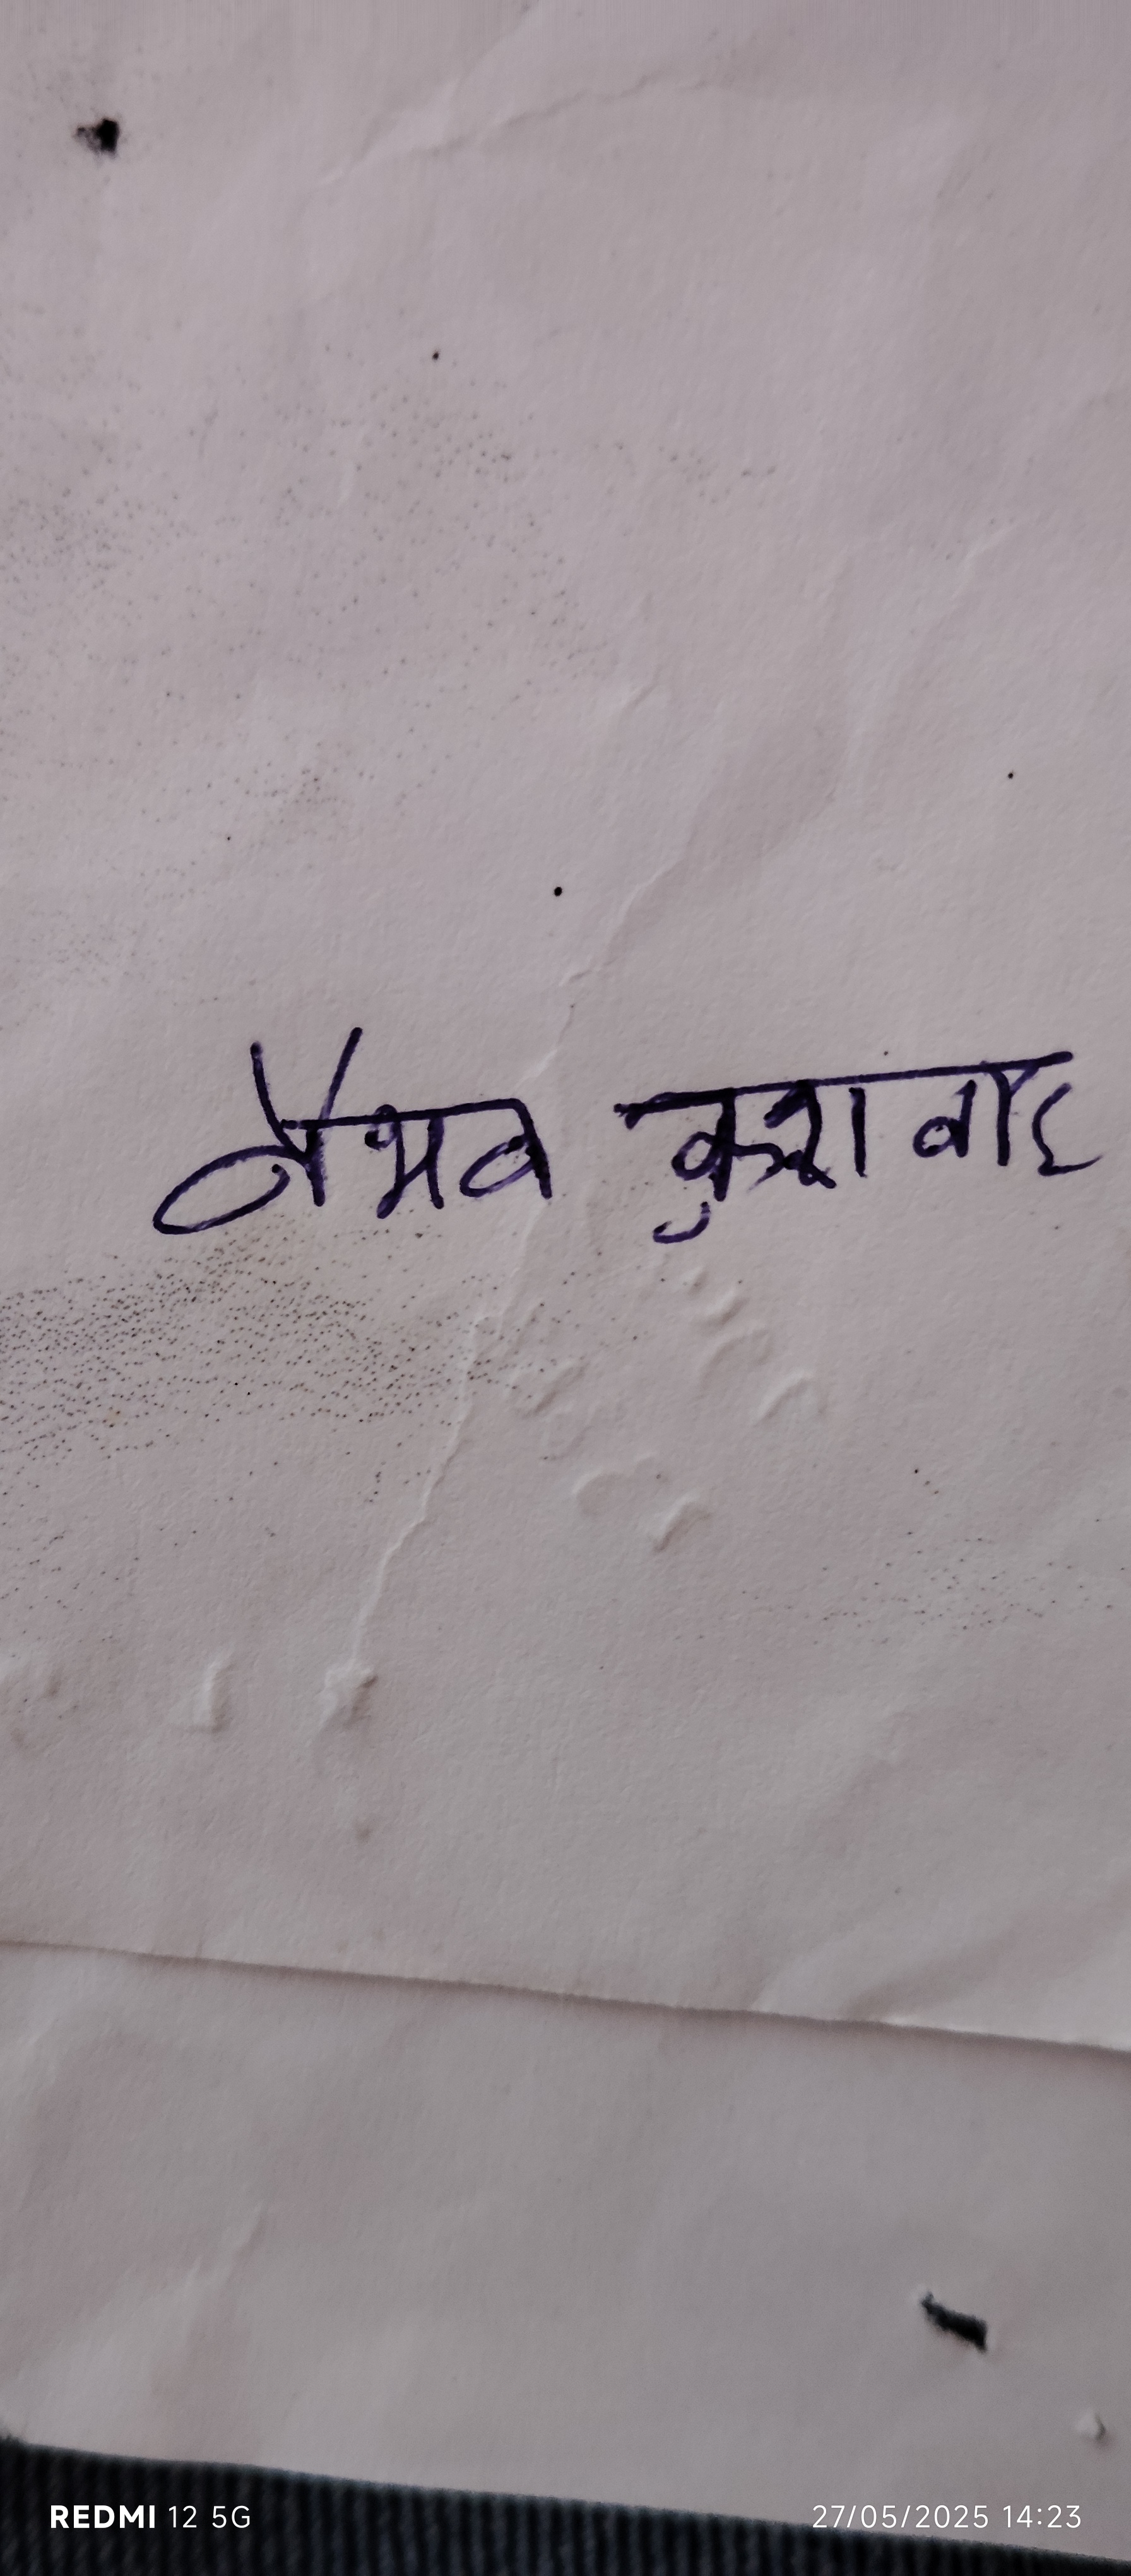 वैभव कुशवाह
REDMI 12 5G
27/05/2025 14:23